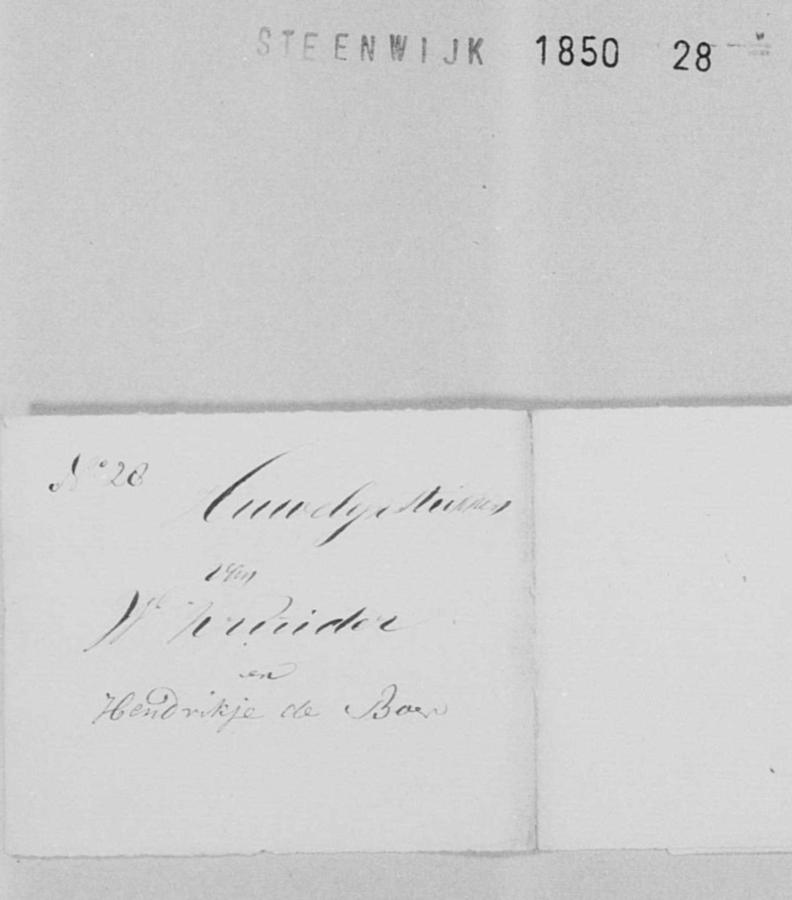 STEENWIJK 1850 28
No 28
Huwelijksstukken
van
Wm
en
Hendrikje de Boer